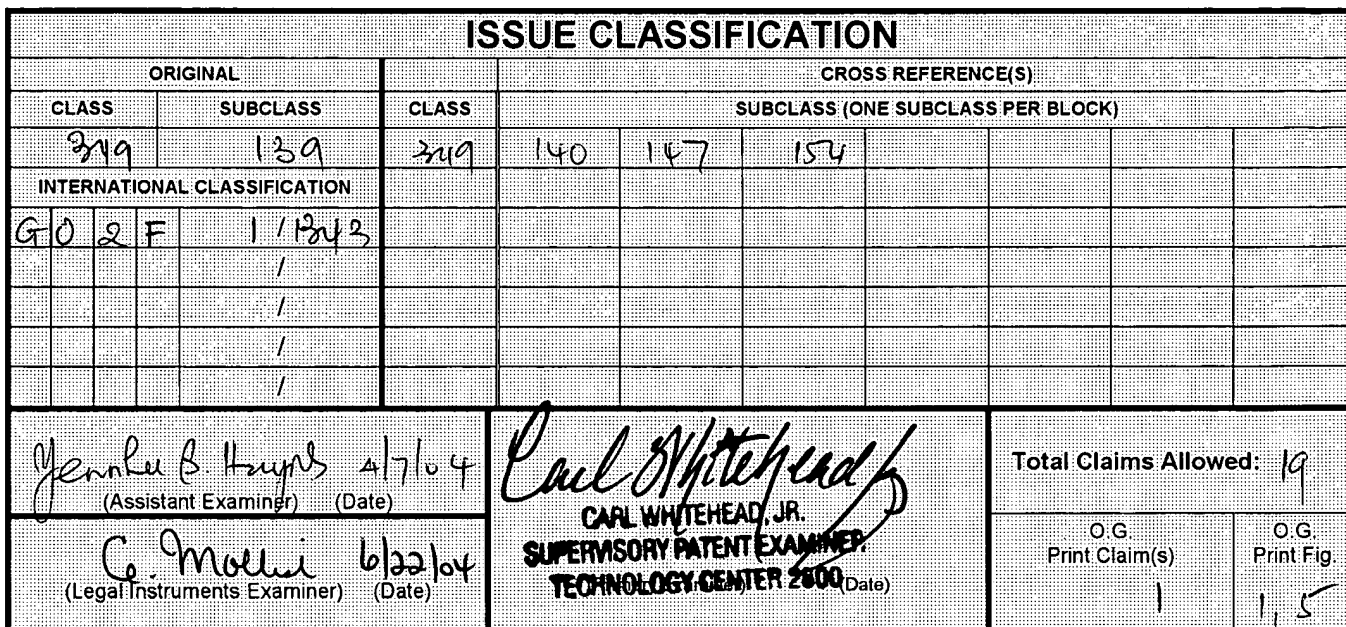 ISSUE CLASSIFICATION
ORIGINAL CROSS REFERENCE(S)
CLASS SUBCLASS CLASS SUBCLASS (ONE SUBCLASS PER BLOCK)
349 139 349 140 147 154
INTERNATIONAL CLASSIFICATION
G 0 2 F 1 / 1343
/
/
/
/
B. 4/7/04
(Assistant Examiner) (Date)
C. 6/22/04
(Legal Instruments Examiner) (Date)
Carl Whitehead Jr
CARL WHITEHEAD, JR.
SUPERVISORY PATENT EXAMINER
TECHNOLOGY CENTER 2800 (Date)
Total Claims Allowed: 19
O.G. Print Claim(s)
1
O.G. Print Fig.
1, 5